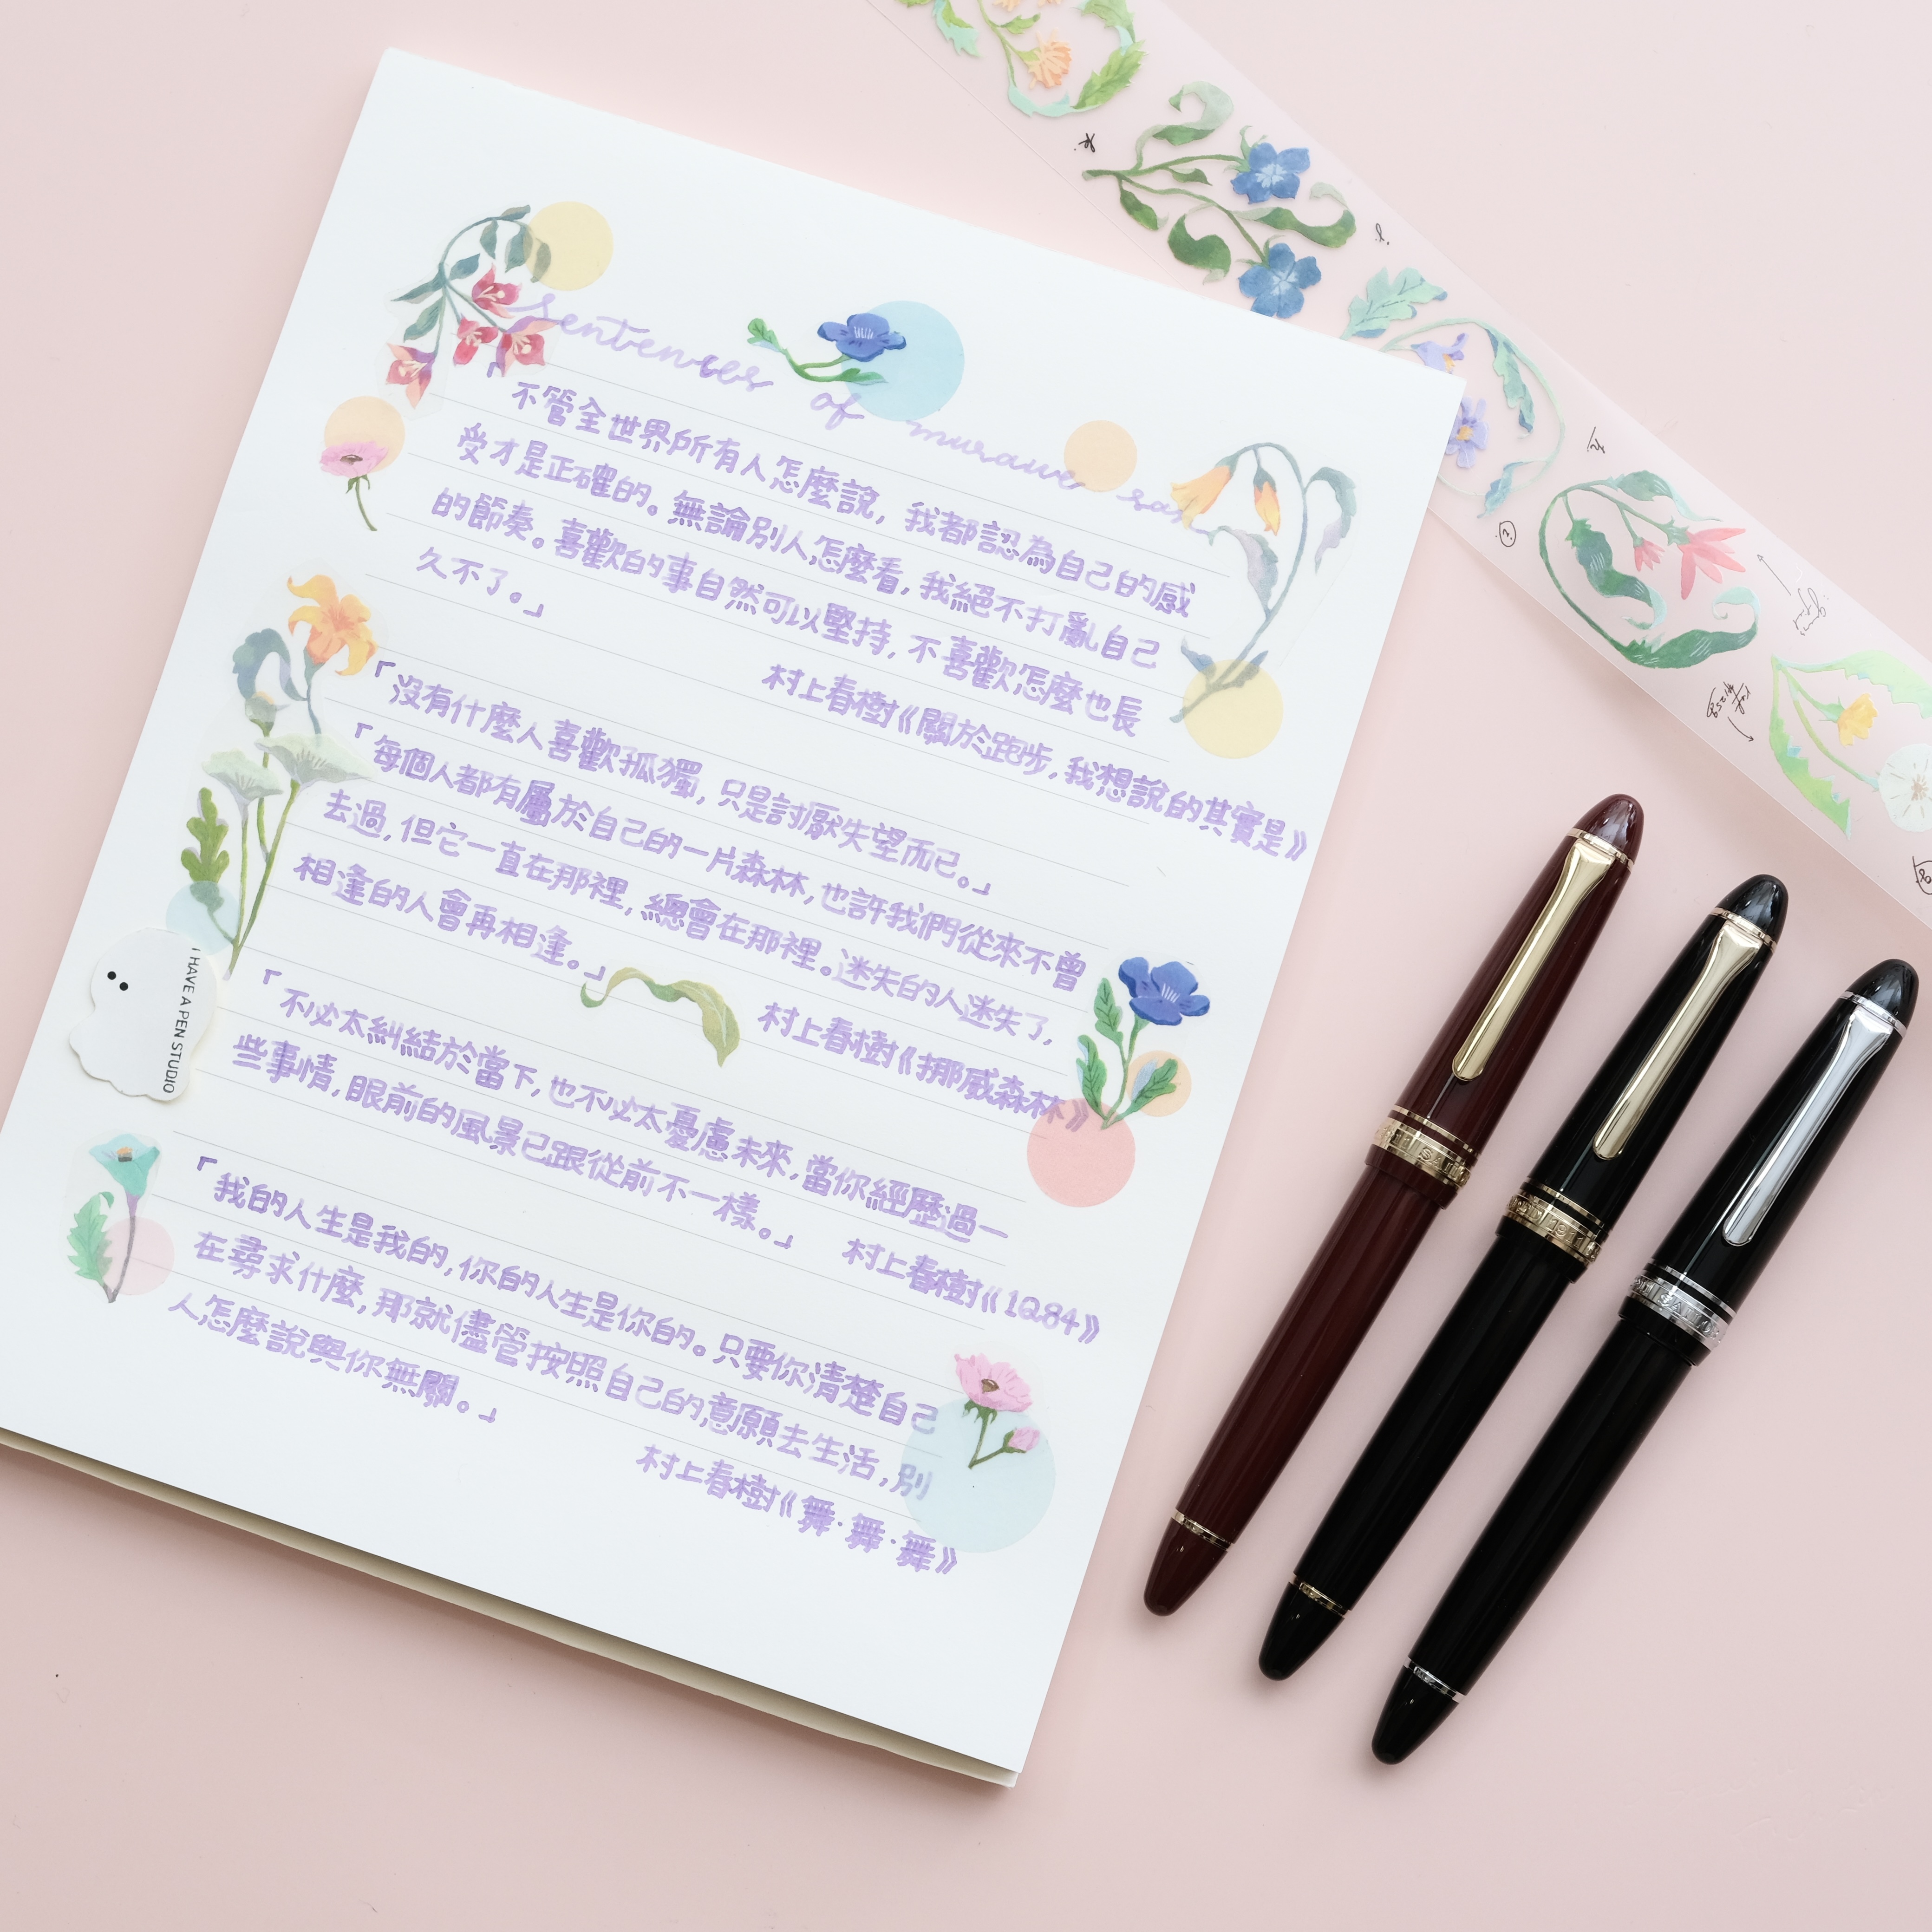 sentences of
「不管全世界所有人怎麼說, 我都認為自己的感
受才是正確的。無論別人怎麼看, 我絕不打亂自己
的節奏。喜歡的事自然可以堅持, 不喜歡怎麼也長
久不了。」
村上春樹《關於跑步, 我想說的其實是》
「沒有什麼人喜歡孤獨, 只是討厭失望而已。」
「每個人都有屬於自己的一片森林, 也許我們從來不曾
去過, 但它一直在那裡, 總會在那裡。迷失的人迷失了,
相逢的人會再相逢。」
村上春樹《挪威森林》
「不必太糾結於當下, 也不必太憂慮未來, 當你經歷過一
些事情, 眼前的風景已跟從前不一樣。」
村上春樹《1Q84》
「我的人生是我的, 你的人生是你的。只要你清楚自己
在尋求什麼, 那就儘管按照自己的意願去生活, 別
人怎麼說與你無關。」
村上春樹《舞·舞·舞》
I HAVE A PEN STUDIO